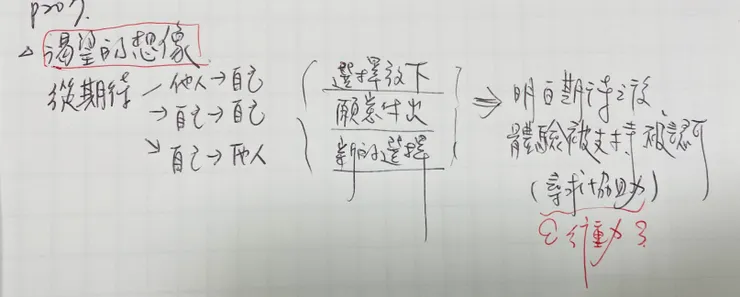 p207.
△ 渴望的想像
從期待 — 他人→自己
→ 自己→自己
↘ 自己→他人
選擇放下
願意付出
新的選擇
⇒ 明白期待之後
體驗被支持、被認可
(尋求協助)
行動